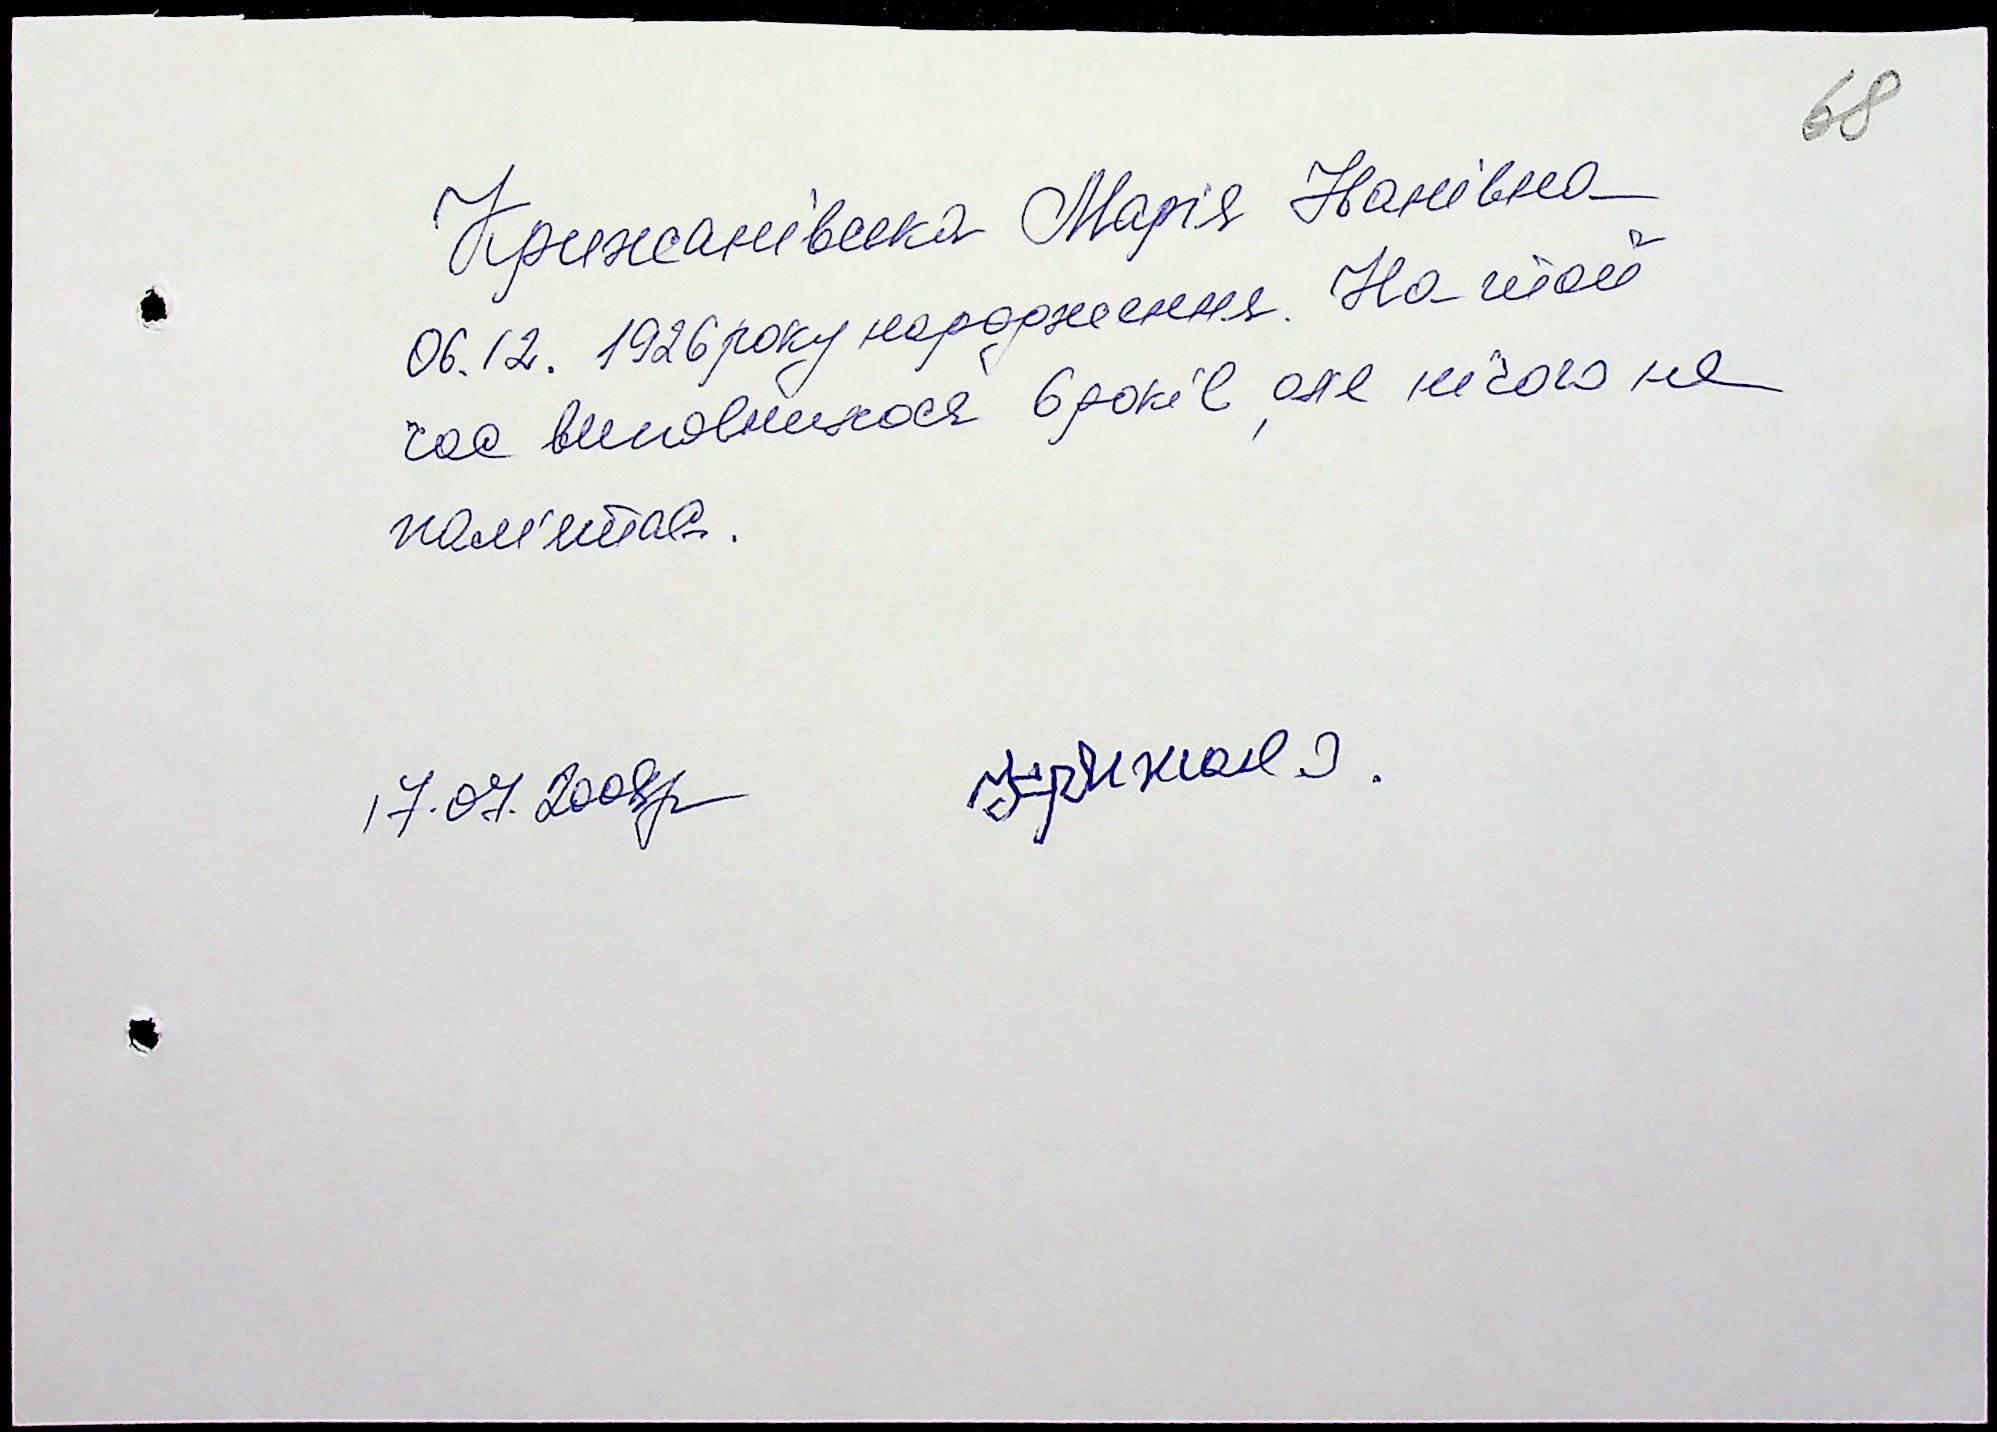 68
Крижанівська Марія Іванівна
06.12. 1926 року народження. На той
час виповнилося 6 років, але нічого не
пам'ятає.
17.07.2008р